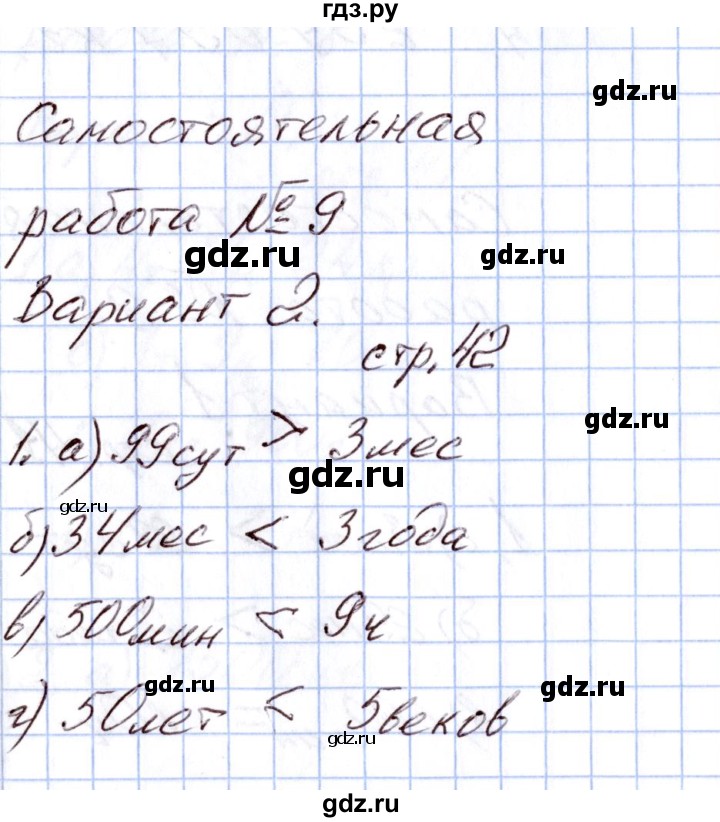 гдз.ру
gdz.ru
Самостоятельная
работа № 9
gdz.ru
gdz.ru
Вариант 2.
стр. 42
gdz.ru
1. а) 99 сут > 3 мес
gdz.ru
gdz.ru
б) 34 мес < 3 года
в) 500 мин < 9 ч
gdz.ru
gdz.ru
г) 50 лет < 5 веков
gdz.ru
gdz.ru